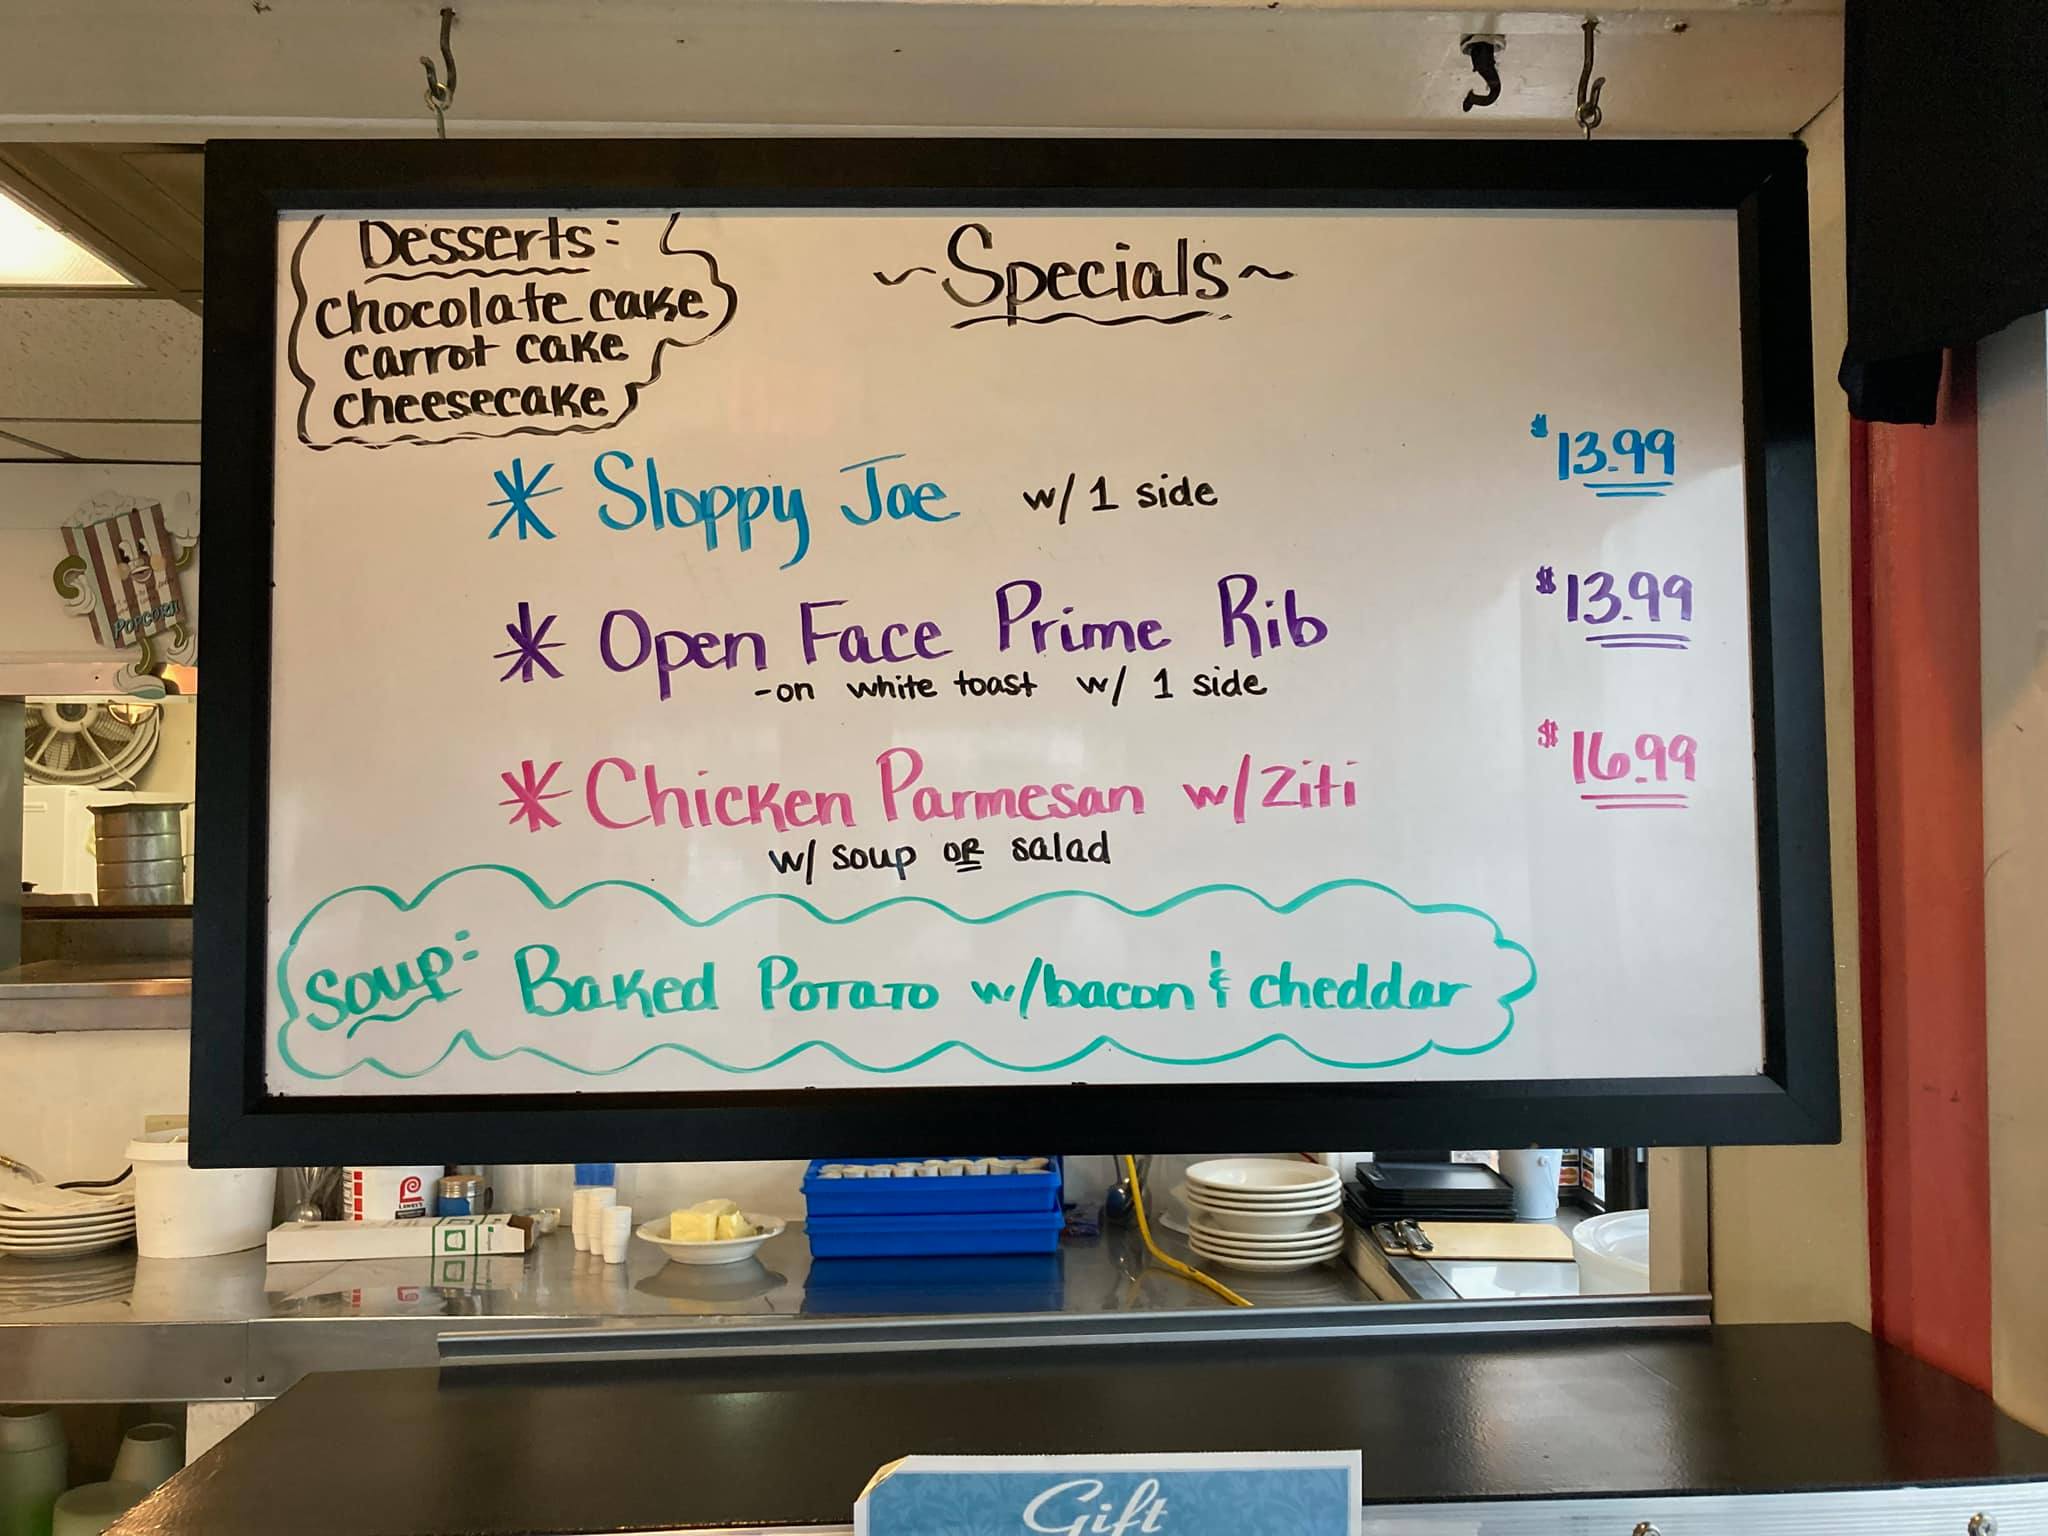 Desserts:
chocolate cake
carrot cake
cheesecake
~Specials~
* Sloppy Joe w/ 1 side $13.99
* Open Face Prime Rib $13.99
-on white toast w/ 1 side
* Chicken Parmesan w/ Ziti $16.99
w/ soup OR salad
Soup: Baked Potato w/bacon & cheddar
POPCORN
Gift